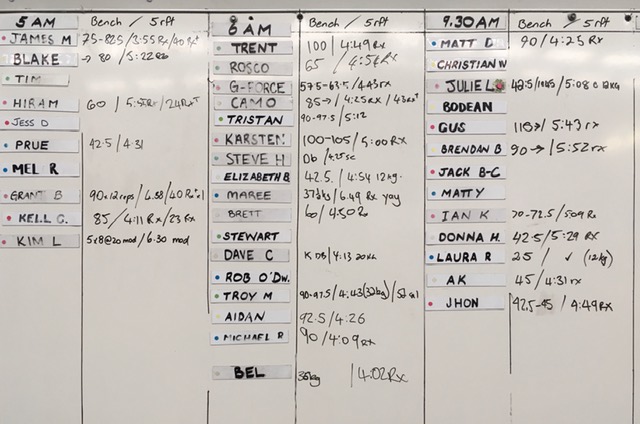 5 AM Bench / 5rft
JAMES M 75-82.5 / 3:55 Rx / 40 Rx+
BLAKE → 80 / 5:22 Rx
TIM
HIRAM 60 / 5:55 Rx / 24 Rx+
JESS D
PRUE 42.5 / 4:31
MEL R
GRANT B 90x12reps / 4.38 / 40 Rx+1
KELL G. 85 / 4:11 Rx / 23 Rx
KIM L 5x8@20 mod / 6.30 mod
6 AM Bench / 5rft
TRENT 100 / 4:49 Rx
ROSCO 65 / 4:54 Rx
G-FORCE 57.5-63.5 / 4.43 RX
CAMO 85→ / 4:25 Rx / 43 Rx+
TRISTAN 90-97.5 / 5:12
KARSTEN 100-105 / 5:00 Rx
STEVE H Db / 4.25 sc
ELIZABETH B 42.5. / 4:54 12kg.
MAREE 37½kg / 6.49 Rx yay
BRETT 60 / 4.50 Rx
STEWART
DAVE C K DB / 4:13 20kg
ROB O'DW.
TROY M 90-97.5 / 4:43 (32kg) /
AIDAN 92.5 / 4:26
MICHAEL R 90 / 4:09 Rx
BEL 35kg / 4:02 Rx
9.30 AM Bench / 5rft
MATT D 90 / 4:25 Rx
CHRISTIAN W
JULIE L 42.5 / 5:08 12kg
BODEAN
GUS 110→ / 5:43 rx
BRENDAN B 90 → / 5:52 rx
JACK B-C
MATTY
IAN K 70-72.5 / 5:09 Rx
DONNA H. 42.5 / 5:29 RX
LAURA R 25 / ✓ (12kg)
AK 45 / 4:31 rx
JHON 42.5-45 / 4:49 RX